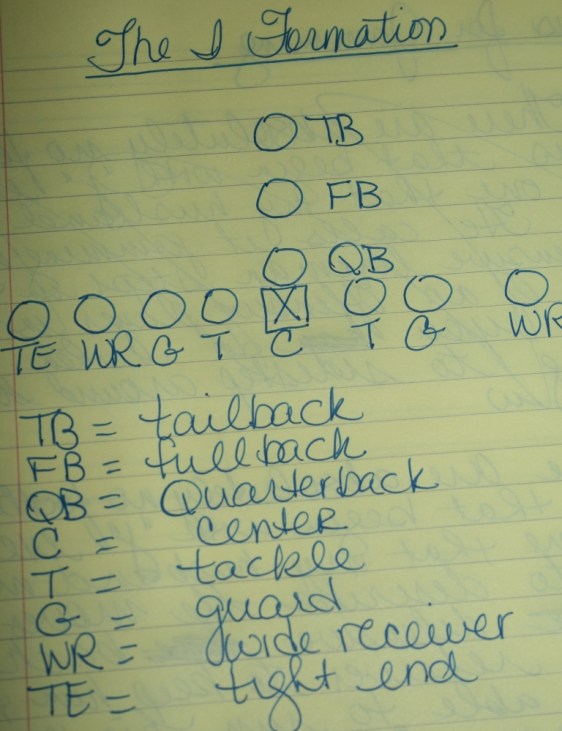 The I Formation
TB
FB
QB
X
TE WR G T C T G WR
TB = tailback
FB = fullback
QB = Quarterback
C = center
T = tackle
G = guard
WR = wide receiver
TE = tight end